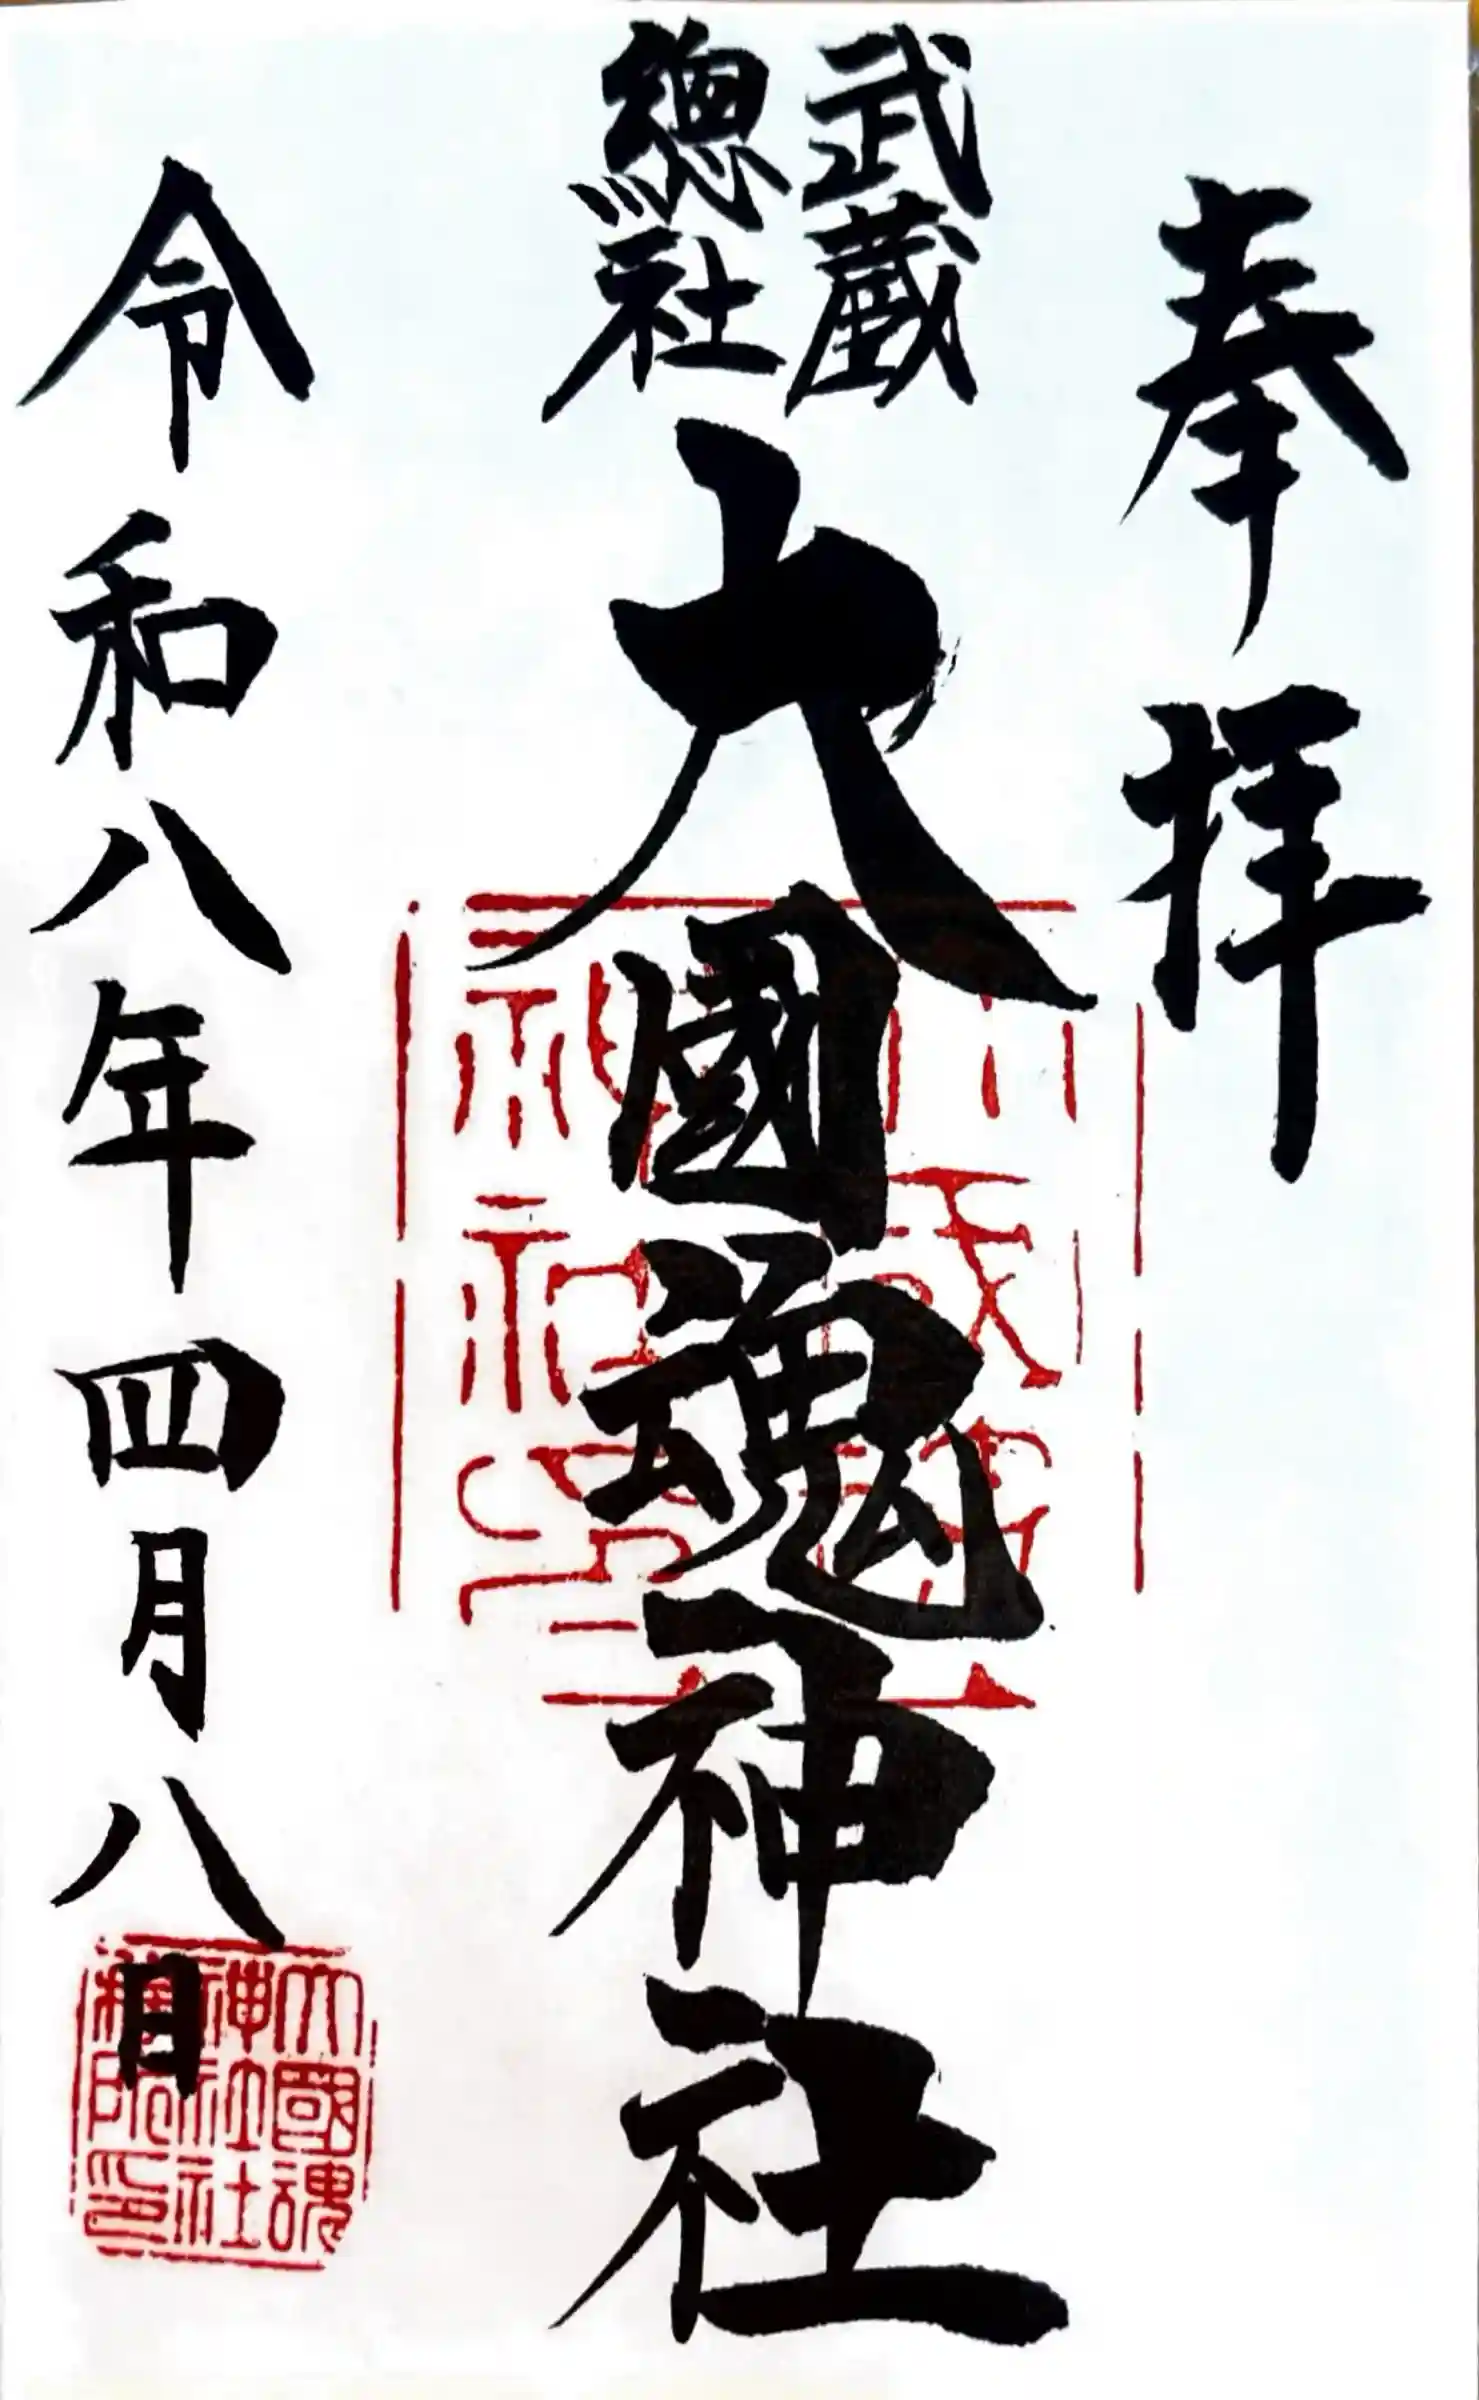 奉拝
武蔵
總社
大國魂神社
令和八年四月八日
大國魂
神社社